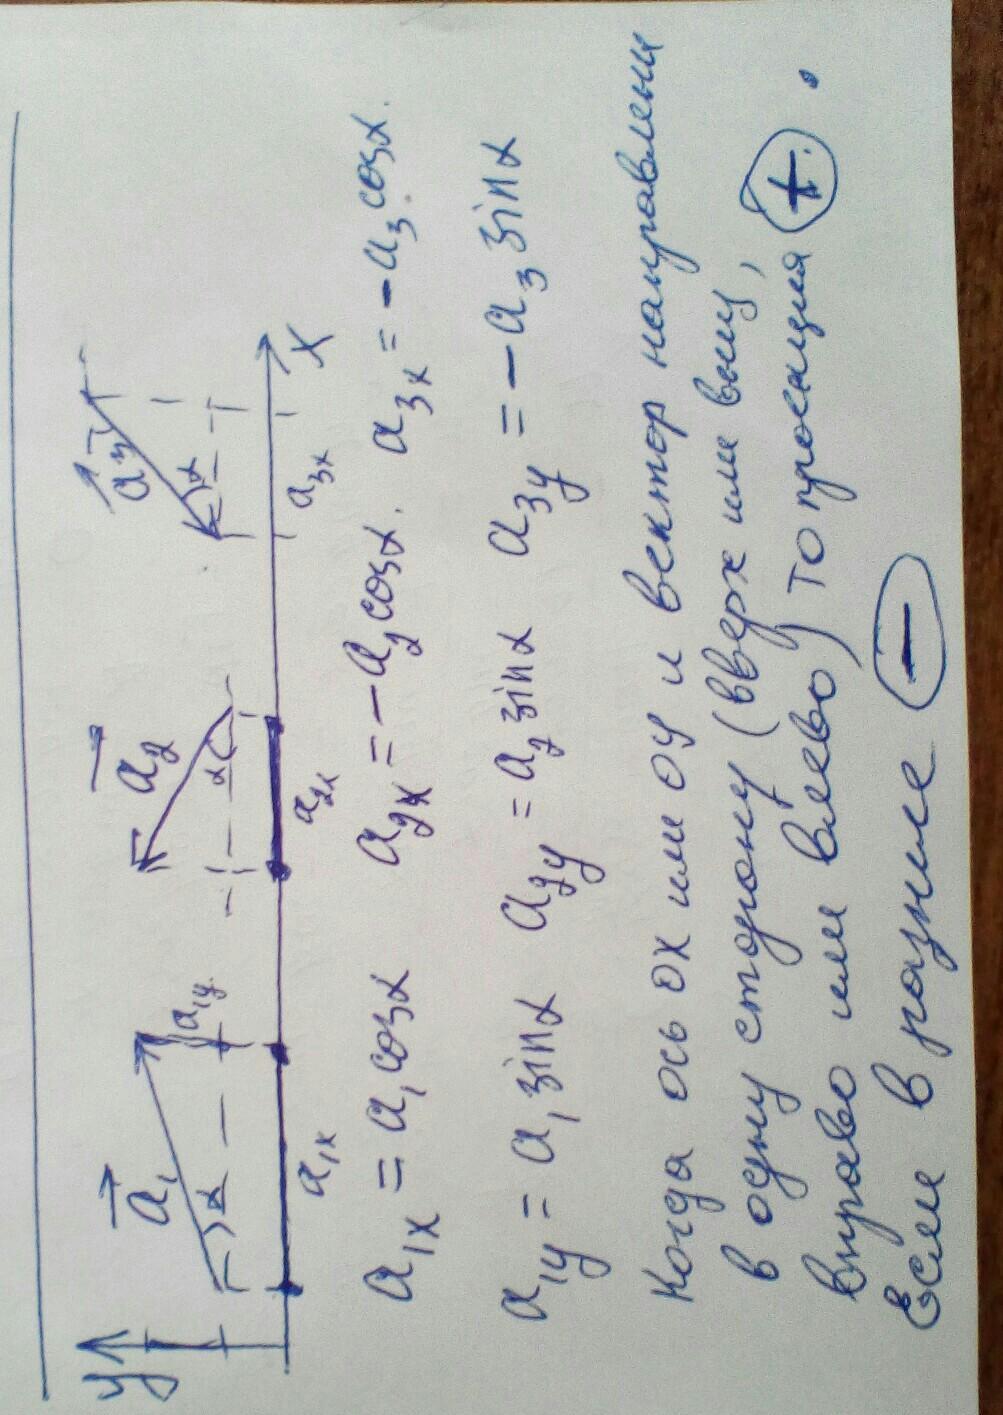 y
a₁ α a₁y a₂ α a₃ α
a₁ₓ a₂ₓ a₃ₓ X
a₁ₓ = a₁ cosα a₂ₓ = −a₂ cosα. a₃ₓ = −a₃ cosα.
a₁y = a₁ sinα a₂y = a₂ sinα a₃y = −a₃ sinα
Когда ось ох или оу и вектор направлены
в одну сторону (вверх или вниз,
вправо или влево) то проекция +.
Если в разные −